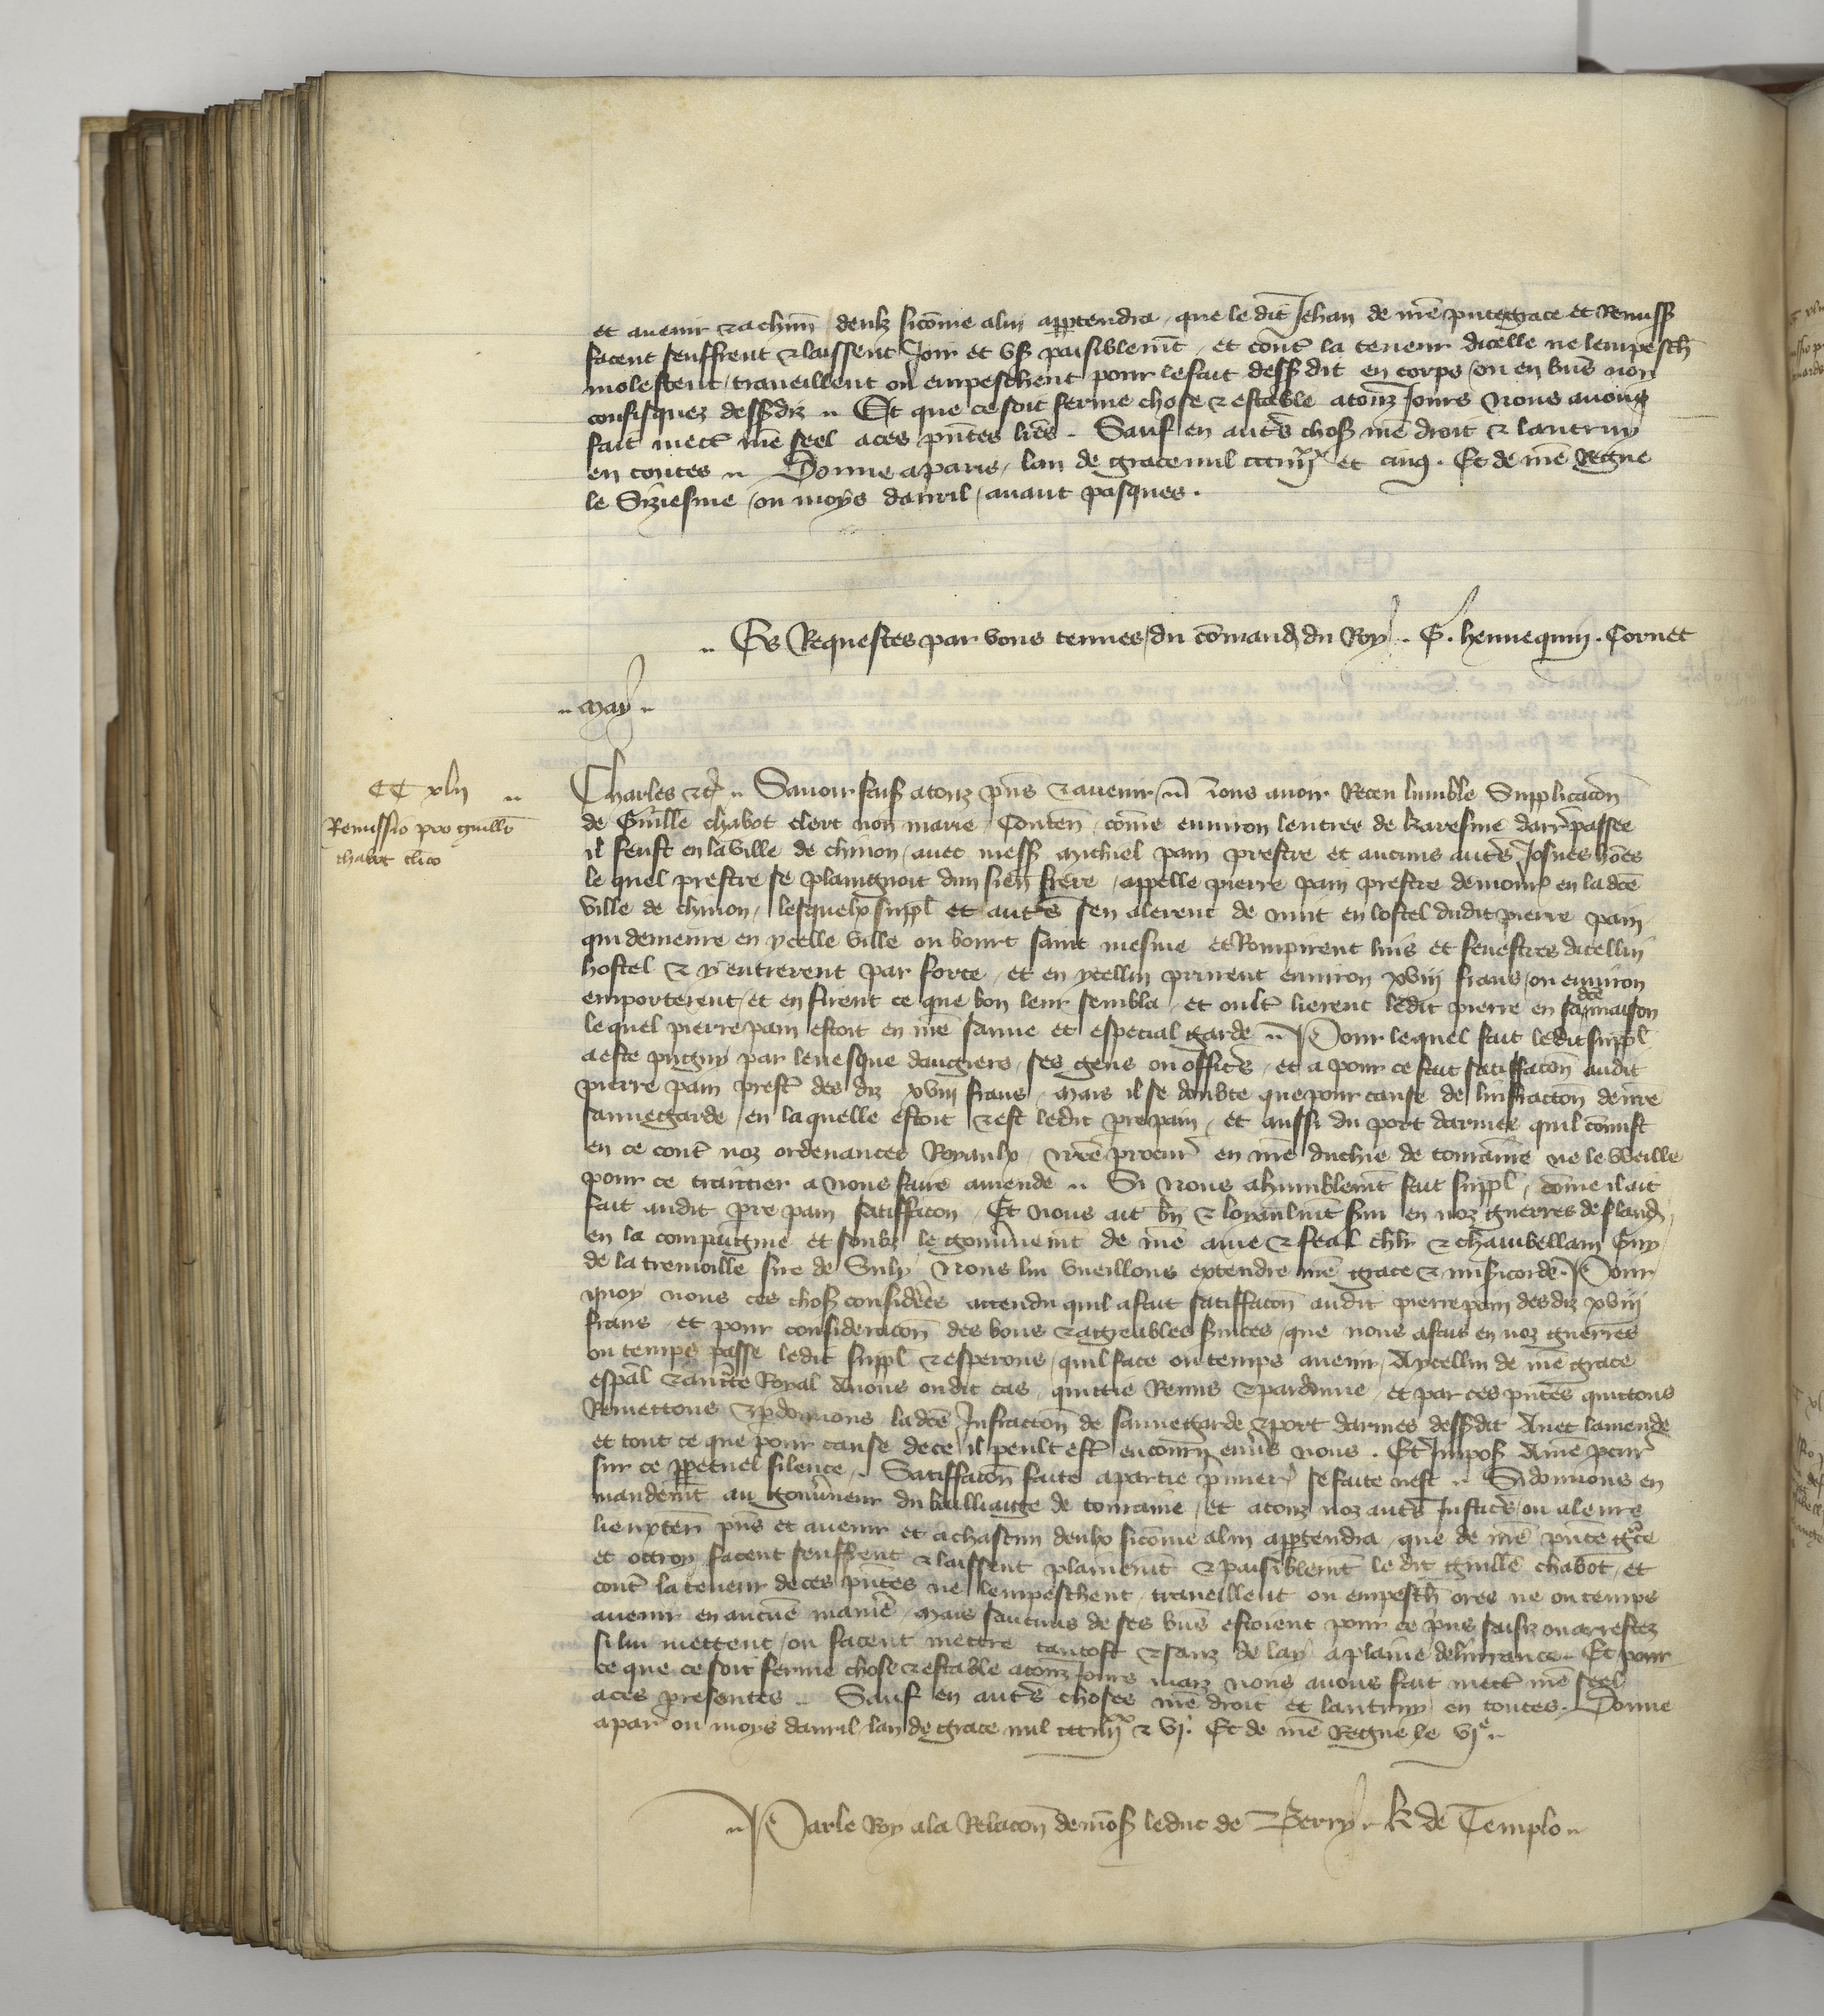 et avenir & achūn deulz sicōme a luy app̄tendra, que le dit Jehan de nr̄e p̄nte grace et Remiss̄
facent seuffrent & laissent Joir et us̄ paisiblemt̄, et contr̄ la teneur dicelle ne lempesch̄
molestent, traveillent ou empeschent pour le fait dess̄ dit en corps, ou en biēs non
confisquez dess̄ diz Et que ce soit ferme chose & estable a touz Jours Nous avons
fait mectr̄ nr̄e seel a ces p̄ntes lr̄es. Sauf en autr̄s chos̄ nr̄e droit & lautruy
en toutes Donne a paris, lan de grace mil ccciiij^xx et cinq. Et de nr̄e Regne
le Siziesme, ou moys davril, avant pasques.
Es Requestes par vous tenues, du cōmand̄ du Roy. G. hennequin. Cornet
may
CC xlij
Remissio pro guillō
chabot cl̄ico
Charles &c̄ Savoir fais̄ a touz p̄ns & avenir, nous avoir Receu lumble Supplicacōn
de Guill̄e chabot clerc non marie, Conten̄, cōme environ lentree de karesme darr̄ passee
il feust en la ville de chinon, avec mess̄ michiel pain prestre et aucuns autr̄s Josnes hōes
le quel prestre se plaingnoit dun sien frere, appelle pierre pain prestre demour̄ en lad̄ce
ville de chinon, lesquelx suppl̄ et autr̄s sen alerent de nuit en lostel dudit pierre pain
qui demeure en ycelle ville ou bourt saint mesme et Rompirent luis et fenestres dicellui
hostel & y entrerent par force, et en ycellui prinrent environ xviij frans, ou environ
emporterent, et en firent ce que bon leur sembla, et oultr̄ lierent ledit pierre en sad̄ce maison
lequel pierre pain estoit en nr̄e sauve et especial garde Pour lequel fait ledit suppl̄
a este pugny par levesque dangiers, ses gens ou offic̄rs, et a pour ce fait satiffacōn audit
pierre pain prestr̄ des diz xviij frans, Mais il se doubte que pour cause de linfraccōn de nr̄e
sauvegarde, en laquelle estoit & est ledit prē pain, et aussi du port darmes quil cōmist
en ce contr̄ noz ordenances Royaulx, nr̄e procur̄ en nr̄e duchie de touraine ne le vueille
pour ce traictier a nous faire amende Si nous a humblemt̄ fait suppl̄, cōme il ait
fait audit prē pain satiffacōn, Et nous ait bn̄ & loyaulmt̄ s̄vi en noz guerres de fland̄,
en la compaignie et soubz le gouv̄nement de nr̄e ame & feal chl̄r & chambellain Guy
de la tremoille sire de Suly Nous lui vueillons extendre nr̄e grace & mis̄icorde. Pour
quoy nous ces chos̄ considēres attendu quil a fait satiffacōn audit pierre pain desdiz xviij
frans, et pour consideracōn des bons & agreables s̄vices, que nous a fais en noz guerres
ou temps passe ledit suppl̄ & esperons, quil face ou temps avenir, Aycellui de nr̄e grace
esp̄al & auctr̄te Royal Avons oudit cas, quictie Remis & pardonne, et par ces p̄ntes quictons
Remettons & p̄donnons lad̄ce Infraccōn de sauvegarde & port darmes dess̄ dit Avec lamende
et tout ce que pour cause de ce il peult estr̄ encouru env̄s nous. Et Impos̄ A nr̄e p̄cur̄
sur ce pp̄etuel silence. Satiffacōn faite a partie p̄mier̄ se faite nest Si donnons en
mandemt̄ au gouv̄neur du bailliaige de touraine, et a touz noz autr̄s Justic̄rs, ou a leurs
lieuxten̄ p̄ns et avenir et a chascun deulx sicōme a lui app̄tendra, que de nr̄e p̄nte gr̄ce
et octroy facent seuffrent & laissent plainemt̄ & paisiblemt̄ le dit guill̄e chabot, et
contr̄ la teneur de ces p̄ntes ne lempeschent, traveillent ou empesch̄ ores ne ou temps
avenir en aucūe maniēe, Mais saucuns de ses biēs estoient pour ce p̄ns saisiz ou arrestez
si lui mettent, ou facent mettre tantost & sanz delay a plaine delivrance. Et pour
ce que ce soit ferme chose & estable a touz Jours maiz nous avons fait mectr̄ nr̄e seel
a ces presentes Sauf en autr̄s choses nr̄e droit et lautruy en toutes. Donne
a par̄ ou moys davril, lan de grace mil ccciiij^xx & vj. Et de nr̄e Regne le vj^e
Par le Roy a la Relacōn de mons̄ le duc de Berry. K de Templo